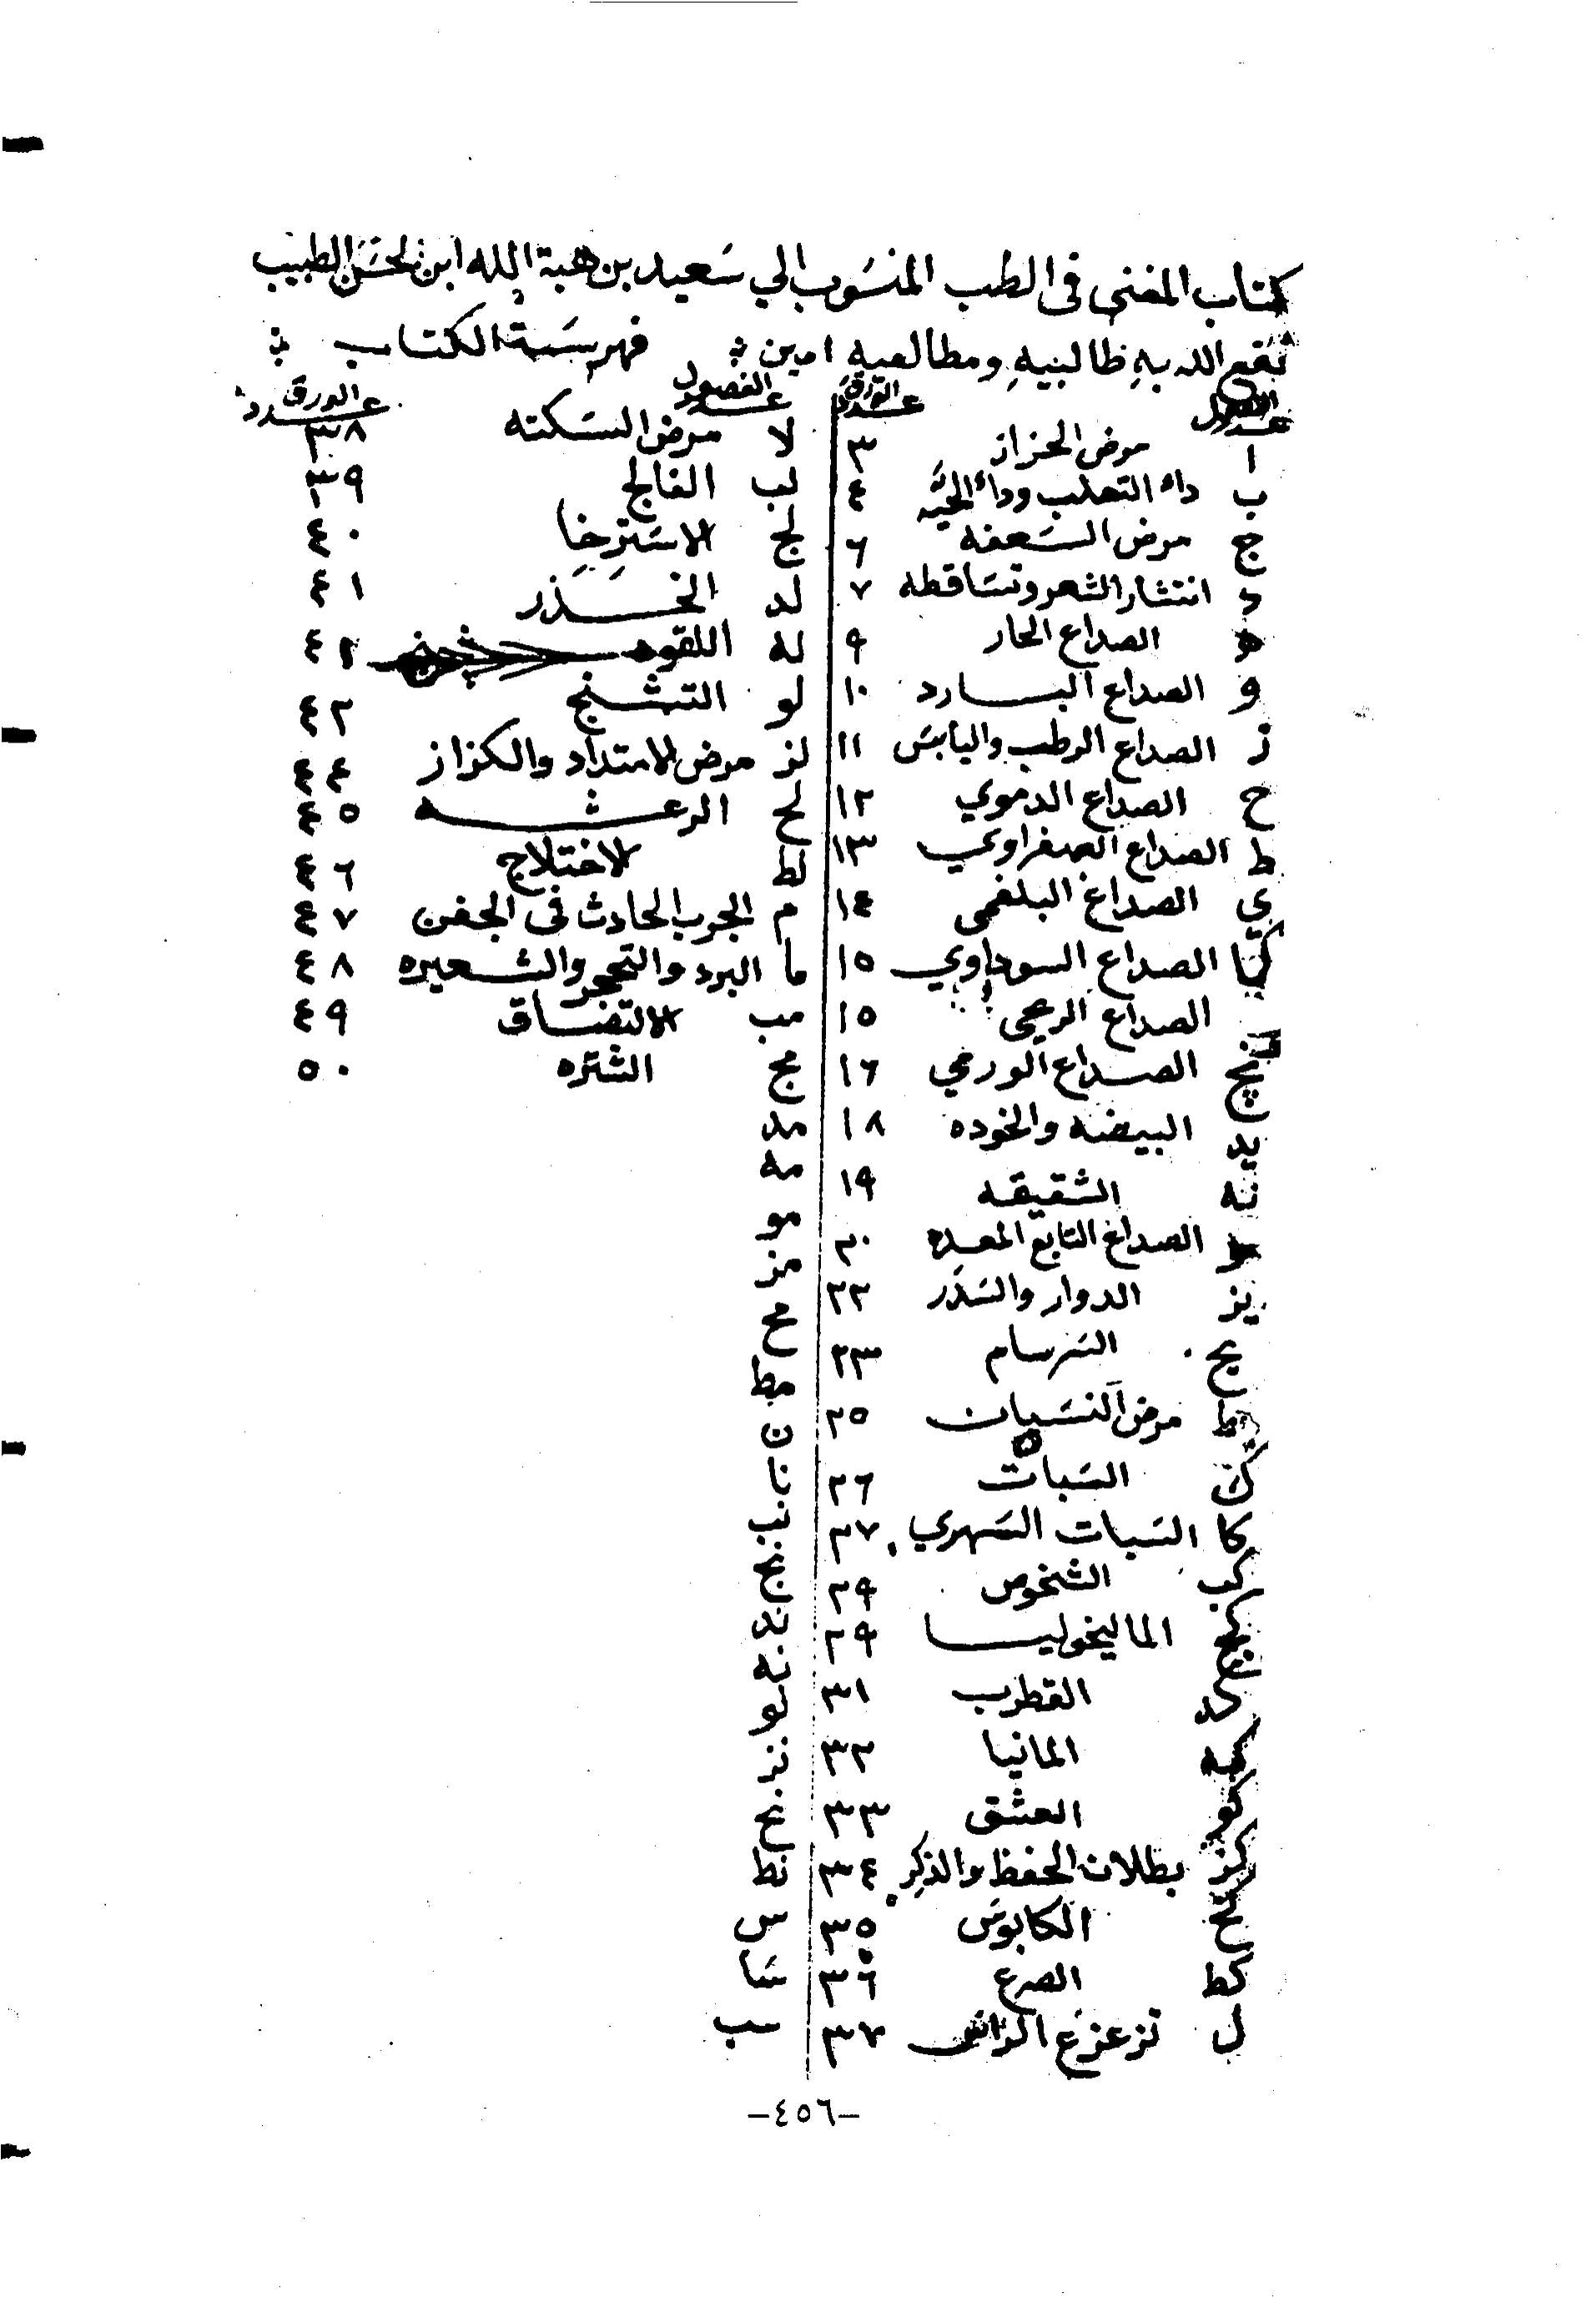 كتاب المغنى فى الطب المنسوب الي سعيد بن هبة الله ابن الحسن الطبيب
نفع الله به طالبيه ومطالعيه امين فهرسة الكتاب
عدد الفصول عدد الورق
ا مرض الحزاز ٣
ب داء الثعلب وداء الحيه ٤
ج مرض السعفه ٦
د انتشار الشعر وتساقطه ٧
ه الصداع الحار ٩
و الصداع البارد ١٠
ز الصداع الرطب واليابس ١١
ح الصداع الدموي ١٢
ط الصداع الصفراوي ١٣
ي الصداع البلغمى ١٤
يا الصداع السوداوي ١٥
الصداع الريحى ١٥
يج الصداع الورمي ١٦
يد البيضه والخوده ١٨
يه الشقيقه ١٩
يو الصداع التابع المعده ٢٠
يز الدوار والسدر ٢٢
يح السرسام ٢٣
يط مرض النسيان ٢٥
ك السبات ٢٦
كا السبات السهري ٢٧
كب الشخوص ٢٩
كج الماليخوليا ٢٩
كد القطرب ٣١
كه المانيا ٣٢
كو العشق ٣٣
كز بطلان الحفظ والذكر ٣٤
كح الكابوس ٣٥
كط الصرع ٣٦
ل تزعزع الراس ٣٧
عدد الفصول عدد الورق
لا مرض السكته ٣٨
لب الفالج ٣٩
لج الاسترخا ٤٠
لد الخدر ٤١
له اللقوه ٤٢
لو التشنج ٤٢
لز مرض الامتداد والكزاز ٤٤
لح الرعشه ٤٥
لط الاختلاج ٤٦
م الجرب الحادث فى الجفن ٤٧
ما البرد والتحجر والشعيره ٤٨
مب الالتصاق ٤٩
مج الشتره ٥٠
مد
مه
مو
مز
مح
مط
ن
نا
نب
نج
ند
نه
نو
نز
نح
نط
س
سا
سب
-٤٥٦-